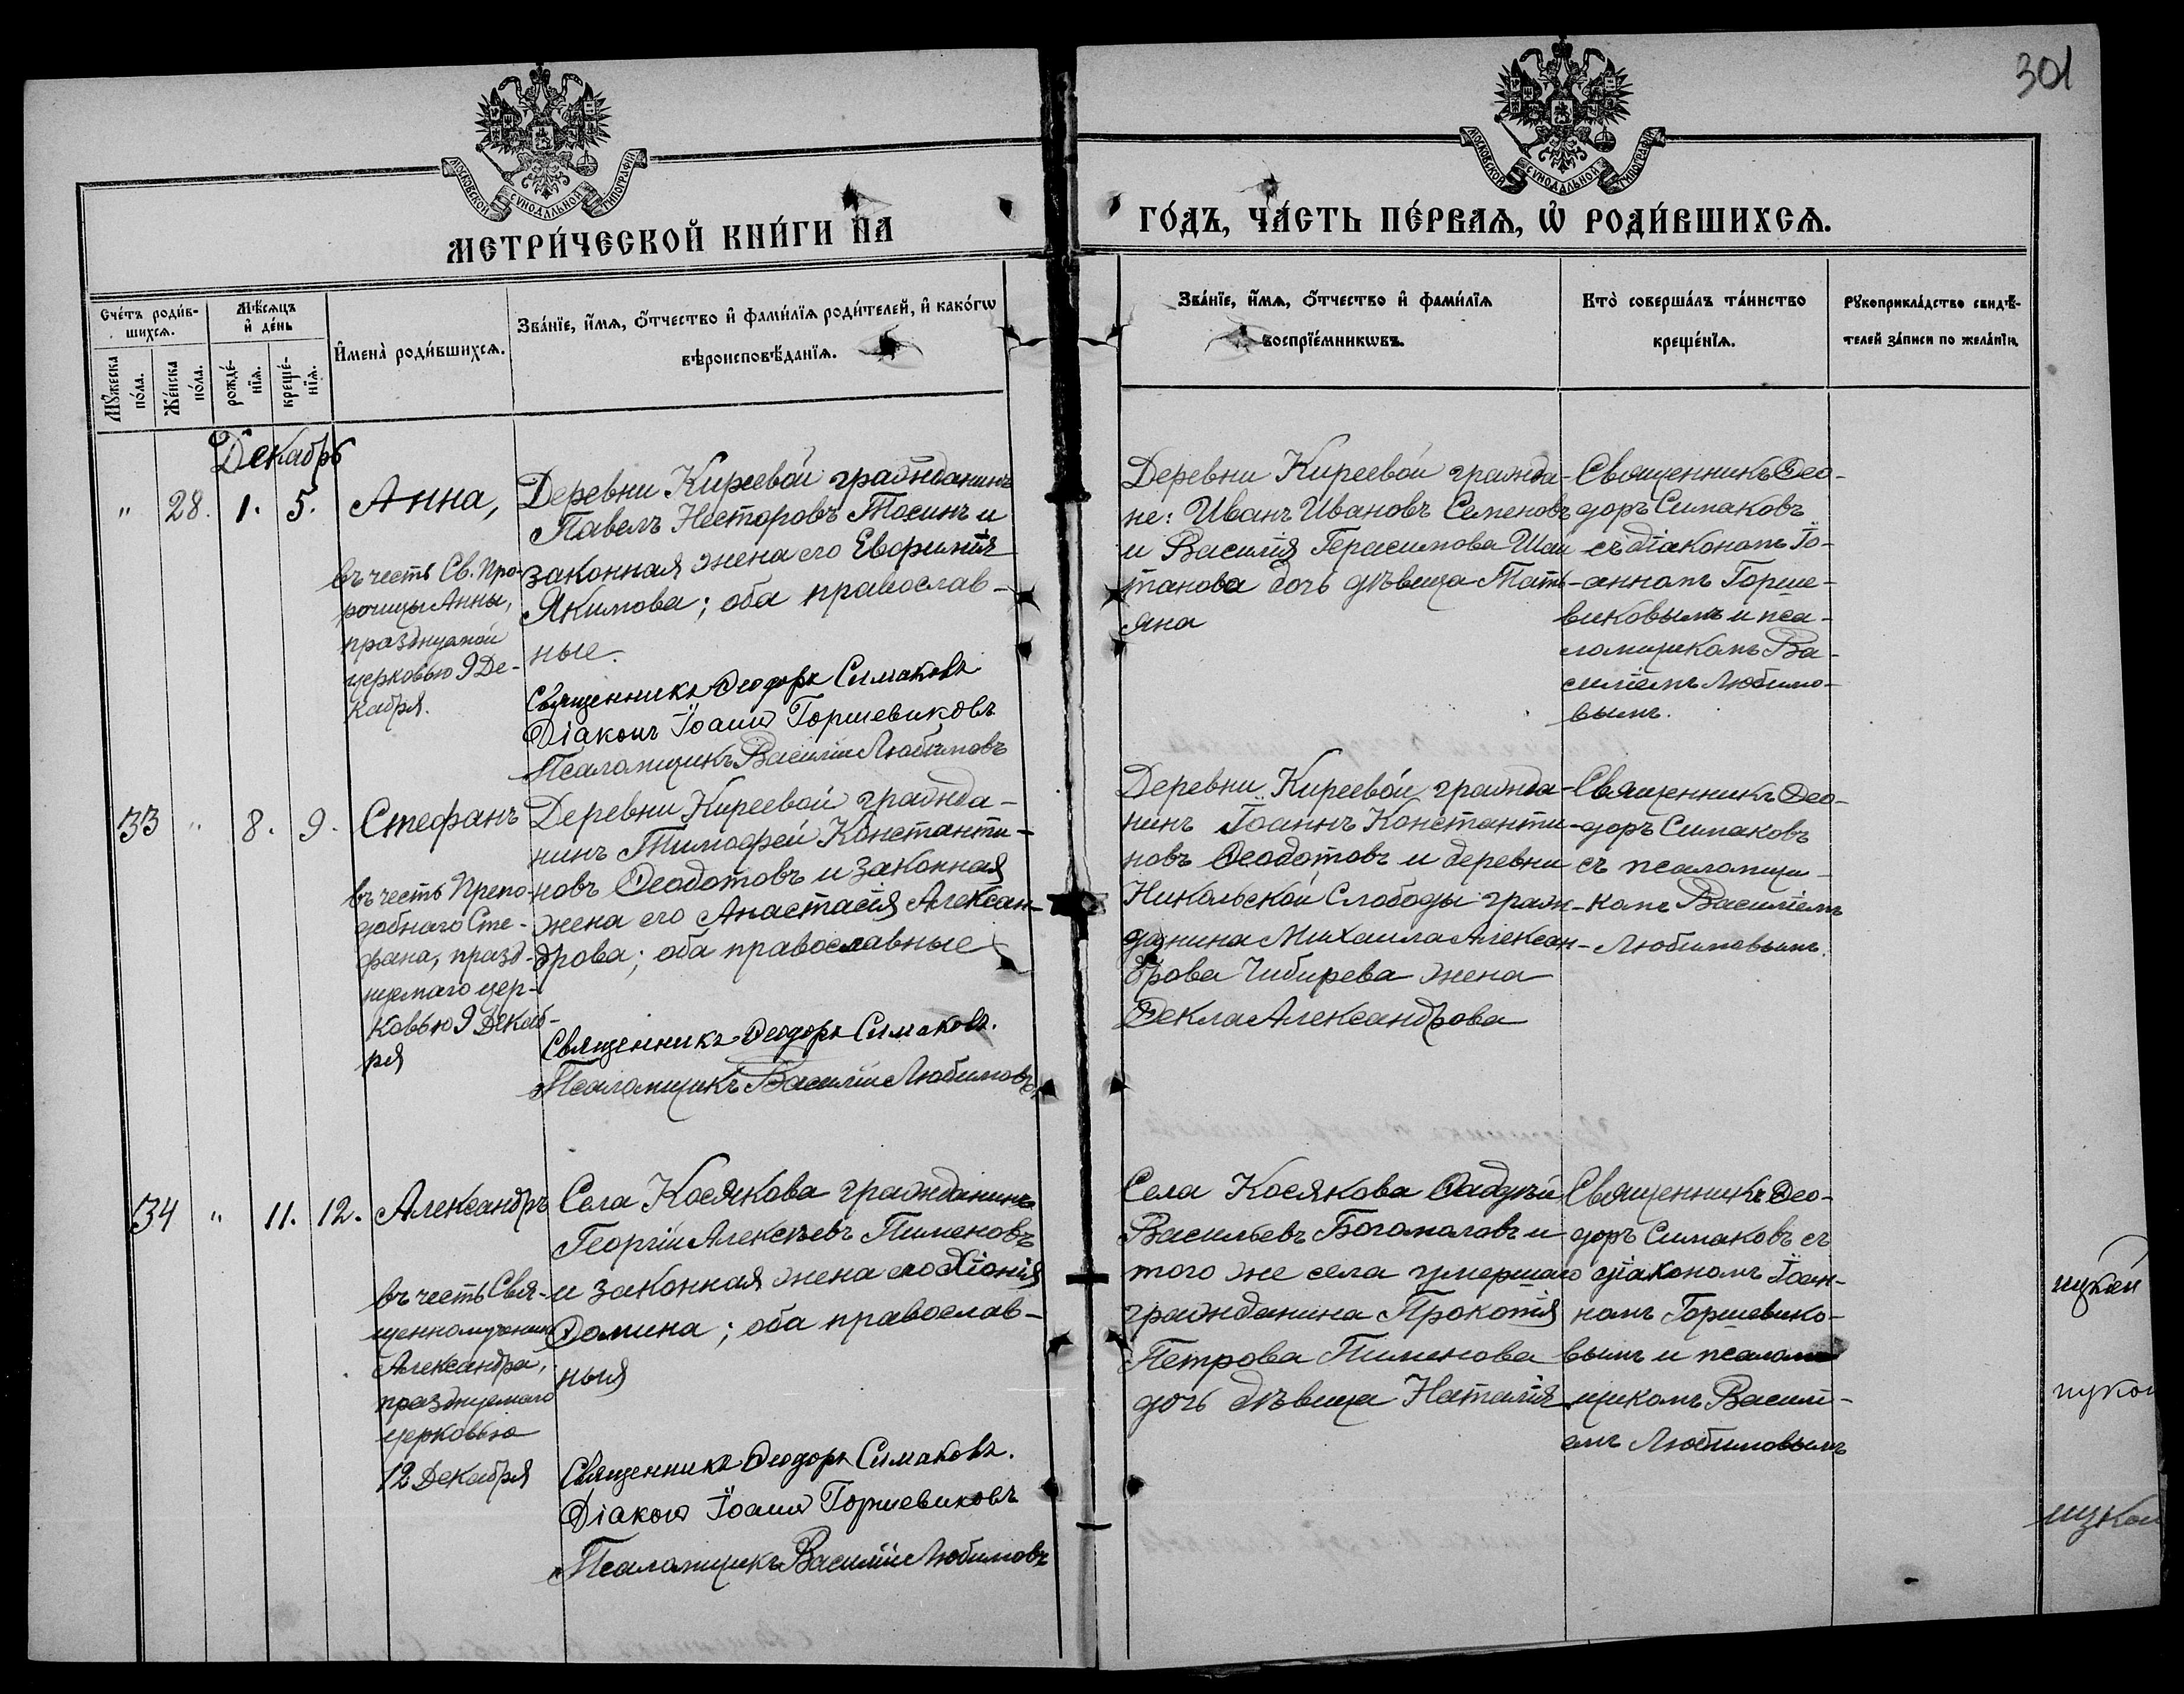 301
МОСКОВСКОЙ СѴНОДАЛЬНОЙ ТИПОГРАФІИ
МОСКОВСКОЙ СѴНОДАЛЬНОЙ ТИПОГРАФІИ
МЕТРИ́ЧЕСКОЙ КНИ́ГИ НА
ГО́ДЪ, ЧА́СТЬ ПЕ́РВАѦ, Ѡ҆ РОДИ́ВШИХСѦ.
Сче́тъ роди́в-
шихсѧ.
Мѣ́сѧцъ
и҆ де́нь
Мꙋ́жеска
по́ла.
Же́нска
по́ла.
рожде́-
нїѧ.
креще́-
нїѧ.
И҆мена̀ роди́вшихсѧ.
Зва́нїе, и҆́мѧ, ѻ҆́тчество и҆ фами́лїѧ роди́телей, и҆ како́гѡ
вѣроисповѣ́данїѧ.
Зва́нїе, и҆́мѧ, ѻ҆́тчество и҆ фами́лїѧ
воспрїе́мникѡвъ.
Кто̀ соверша́лъ та́инство
креще́нїѧ.
Рꙋкоприкла́дство свидѣ́-
телей за́писи по жела́нїю.
Декабрь
" 28. 1. 5. Анна,
въ честь Св. Про-
рочицы Анны,
празднуемой
церковью 9 Де-
кабря.
Деревни Киреевой гражданинъ
Павелъ Несторовъ Тосинъ и
законная жена его Евфимія
Якимова; оба православ-
ные.
Священникъ Ѳеодоръ Симаковъ
Діаконъ Іоаннъ Горшевиковъ
Псаломщикъ Василій Любимовъ
Деревни Киреевой гражда-
не: Иванъ Ивановъ Семеновъ
и Василія Герасимова Шай
танова дочь дѣвица Тать-
яна
Священникъ Ѳео-
доръ Симаковъ
съ діакономъ Іо-
анномъ Горше-
виковымъ и пса-
ломщикомъ Ва-
силіемъ Любимо-
вымъ.
33 " 8. 9. Стефанъ
въ честь Препо-
добнаго Сте-
фана, празд-
нуемаго цер-
ковью 9 Декаб-
ря
Деревни Киреевой гражда-
нинъ Тимофей Константи-
новъ Ѳеодотовъ и законная
жена его Анастасія Алексан-
дрова; оба православные
Священникъ Ѳеодоръ Симаковъ.
Псаломщикъ Василій Любимовъ
Деревни Киреевой гражда-
нинъ Іоаннъ Константи-
новъ Ѳеодотовъ и деревни
Никольской Слободы граж-
данина Михаила Алексан-
дрова Чибирева жена
Ѳекла Александрова
Священникъ Ѳео-
доръ Симаковъ
съ псаломщи-
комъ Василіемъ
Любимовымъ.
34 " 11. 12. Александръ
въ честь Свя-
щенномученика
Александра,
празднуемаго
церковью
12 Декабря
Села Косякова гражданинъ
Георгій Алексѣевъ Пименовъ
и законная жена его Хіонія
Ѳомина; оба православ-
ныя
Священникъ Ѳеодоръ Симаковъ.
Діаконъ Іоаннъ Горшевиковъ
Псаломщикъ Василій Любимовъ
Села Косякова Ѳаддѣй
Васильевъ Богомоловъ и
того же села умершаго
гражданина Прокопія
Петрова Пименова
дочь дѣвица Наталія
Священникъ Ѳео-
доръ Симаковъ съ
діакономъ Іоан-
номъ Горшевико-
вымъ и псалом
щикомъ Васили-
емъ Любимовымъ